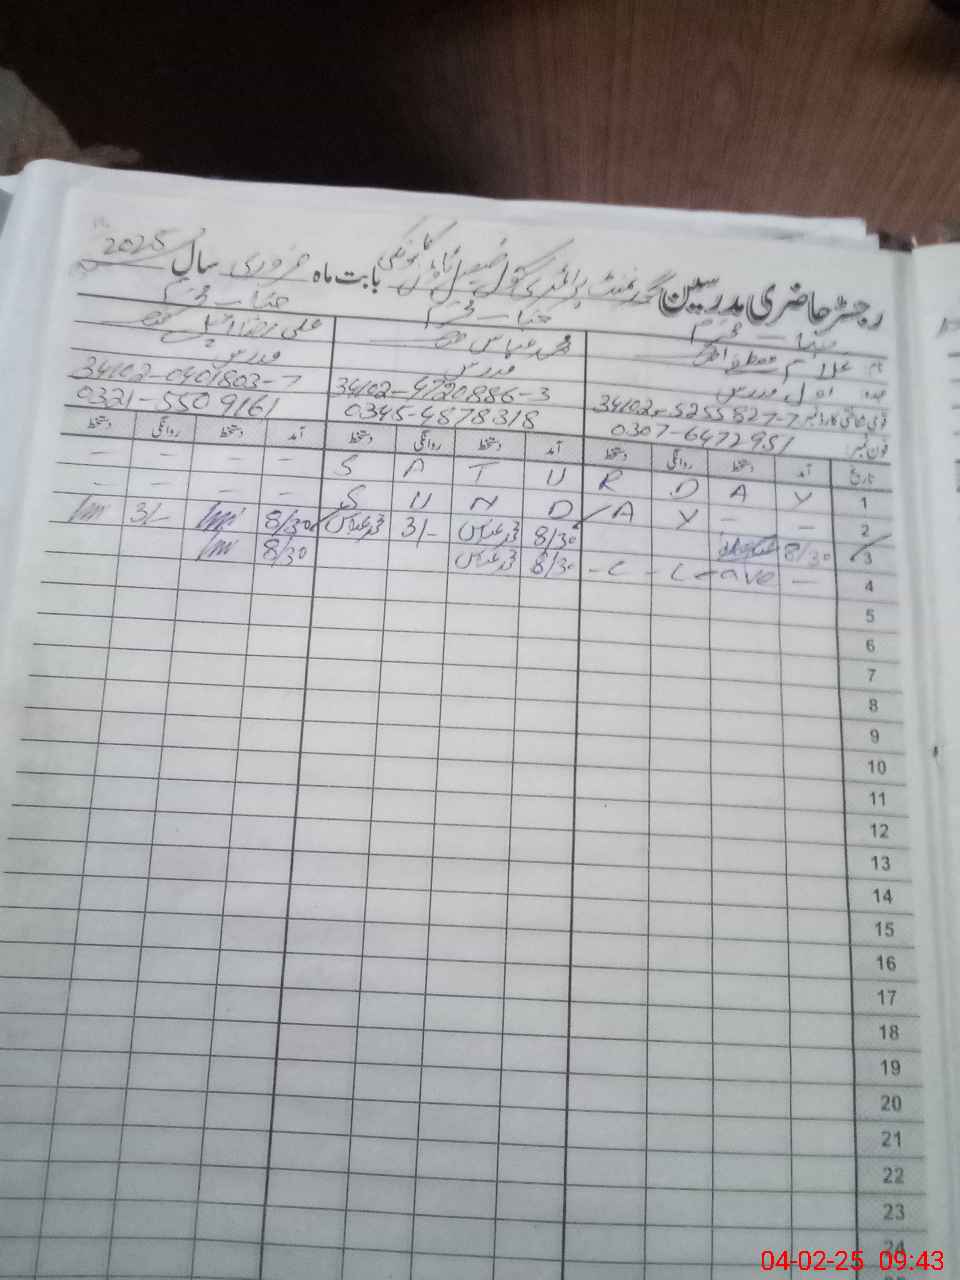 رجسٹر حاضری مدرسین گورنمنٹ پرائمری سکول بابت ماہ فروری سال 2025
نام غلام جناب محترم محمد عباس جناب محترم علی رضا
عہدہ اول مدرس مدرس مدرس
قومی شناختی کارڈ نمبر 34102-5255827-7 34102-4720886-3 34102-0401803-7
فون نمبر: 0307-6472951 0345-4878318 0321-5509161
تاریخ آمد دستخط روانگی دستخط آمد دستخط روانگی دستخط آمد دستخط روانگی دستخط
1 — — — — S A T U R D A Y
2 — — — — S U N D A Y — —
3 8/30 8/30 محمد عباس 3/- محمد عباس 8/30 3/-
4 — Leave - L - 8/30 محمد عباس 8/30
5
6
7
8
9
10
11
12
13
14
15
16
17
18
19
20
21
22
23
24
04-02-25 09:43